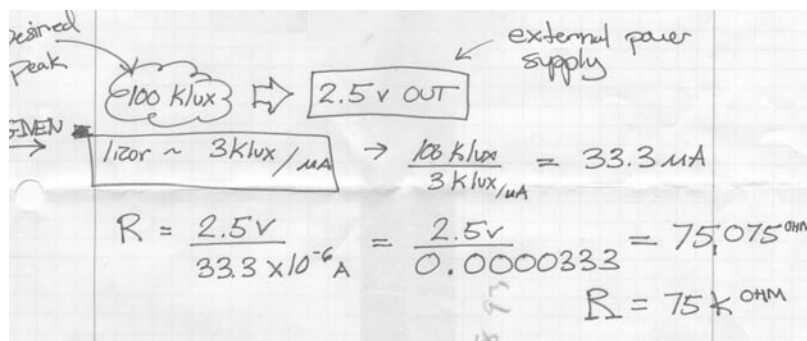 Desired
Peak
100 Klux ⇨ 2.5 v OUT
external power
supply
GIVEN
→ licor ~ 3Klux/μA → 100 Klux / 3 Klux/μA = 33.3 μA
R = 2.5v / 33.3 x10⁻⁶ A = 2.5v / 0.0000333 = 75,075 OHM
R = 75 K OHM